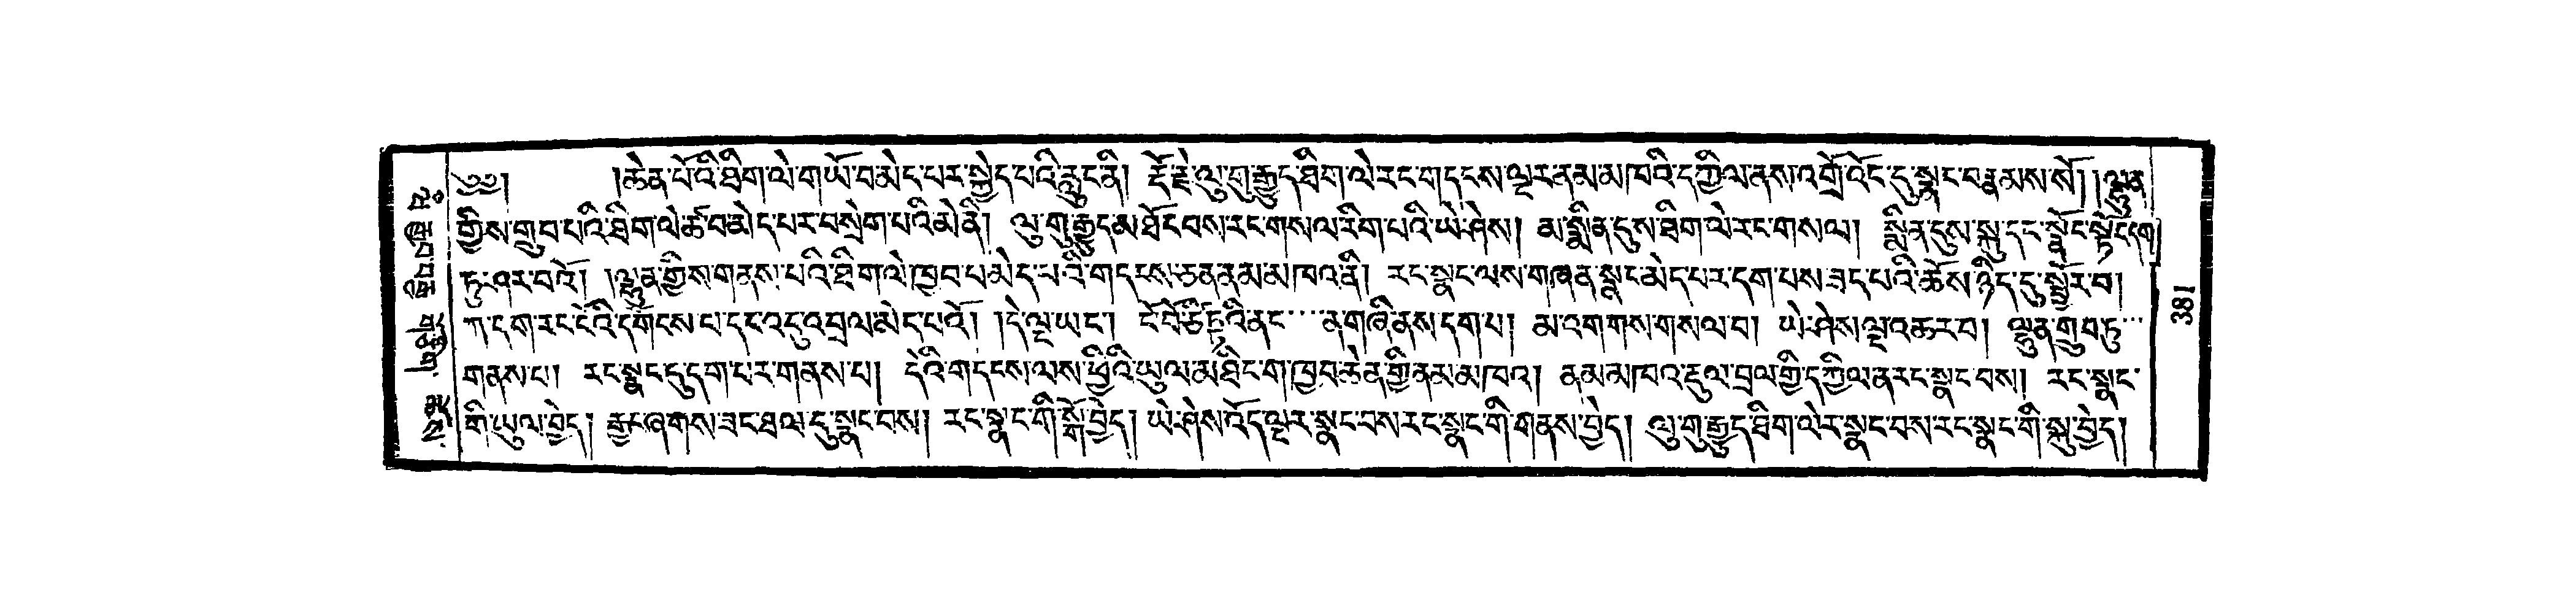 ༄༅། །ཆེན་པོའི་ཐིག་ལེ་གཡོ་བ་མེད་པར་སྐྱེད་པའི་རླུང་ནི། རྡོ་རྗེ་ལུ་གུ་རྒྱུད་ཐིག་ལེ་རང་གདངས་ལྟར་ནམ་མཁའི་དཀྱིལ་ནས་འགྲོ་འོང་དུ་སྣང་བ་རྣམས་སོ། །ལྷུན་
གྱིས་གྲུབ་པའི་ཐིག་ལེ་ཚ་བ་མེད་པར་བསྲེག་པའི་མེ་ནི། ལུ་གུ་རྒྱུད་མ་ཐོང་བས་རང་གསལ་རིག་པའི་ཡེ་ཤེས། མ་སྨིན་དུས་ཐིག་ལེ་རང་གསལ། སྨིན་དུས་སྐུ་དང་སྣང་སྟོང་དག་
ཏུ་ཤར་བའོ། །ལྷུན་གྱིས་གནས་པའི་ཐིག་ལེ་ཁྱབ་པ་མེད་པའི་གདངས་ཅན་ནམ་མཁའ་ནི། རང་སྣང་ལས་གཞན་སྣང་མེད་པར་དག་པས་ཟད་པའི་ཆོས་ཉིད་དུ་སྦྱོར་བ།
ཀ་དག་རང་ངོའི་དགོངས་པ་དང་འདུ་འབྲལ་མེད་པའོ། །དེ་ལྟ་ཡང་། ངོ་བོ་ཙིཏྟའི་ནང་་་་ན་གཞི་ནས་དག་པ། མ་འགགས་གསལ་བ། ཡེ་ཤེས་ལྔ་འཆར་བ། ལྷུན་གྲུབ་ཏུ་་་
གནས་པ། རང་སྣང་དུ་དག་པར་གནས་པ། དེའི་གདངས་ལས་ཕྱིའི་ཡུལ་མཐིང་ག་ཁྱབ་ཆེན་གྱི་ནམ་མཁའ། ནམ་མཁའ་རྡུལ་བྲལ་གྱི་དཀྱིལ་ན་རང་སྣང་བས། རང་སྣང་
གི་ཡུལ་བྱེད། རྒྱང་ཞགས་ཟང་ཐལ་དུ་སྣང་བས། རང་སྣང་གི་སྒོ་བྱེད། ཡེ་ཤེས་འོད་ལྔར་སྣང་བས་རང་སྣང་གི་གནས་བྱེད། ལུ་གུ་རྒྱུད་ཐིག་ལེར་སྣང་བས་རང་སྣང་གི་སྐུ་བྱེད།